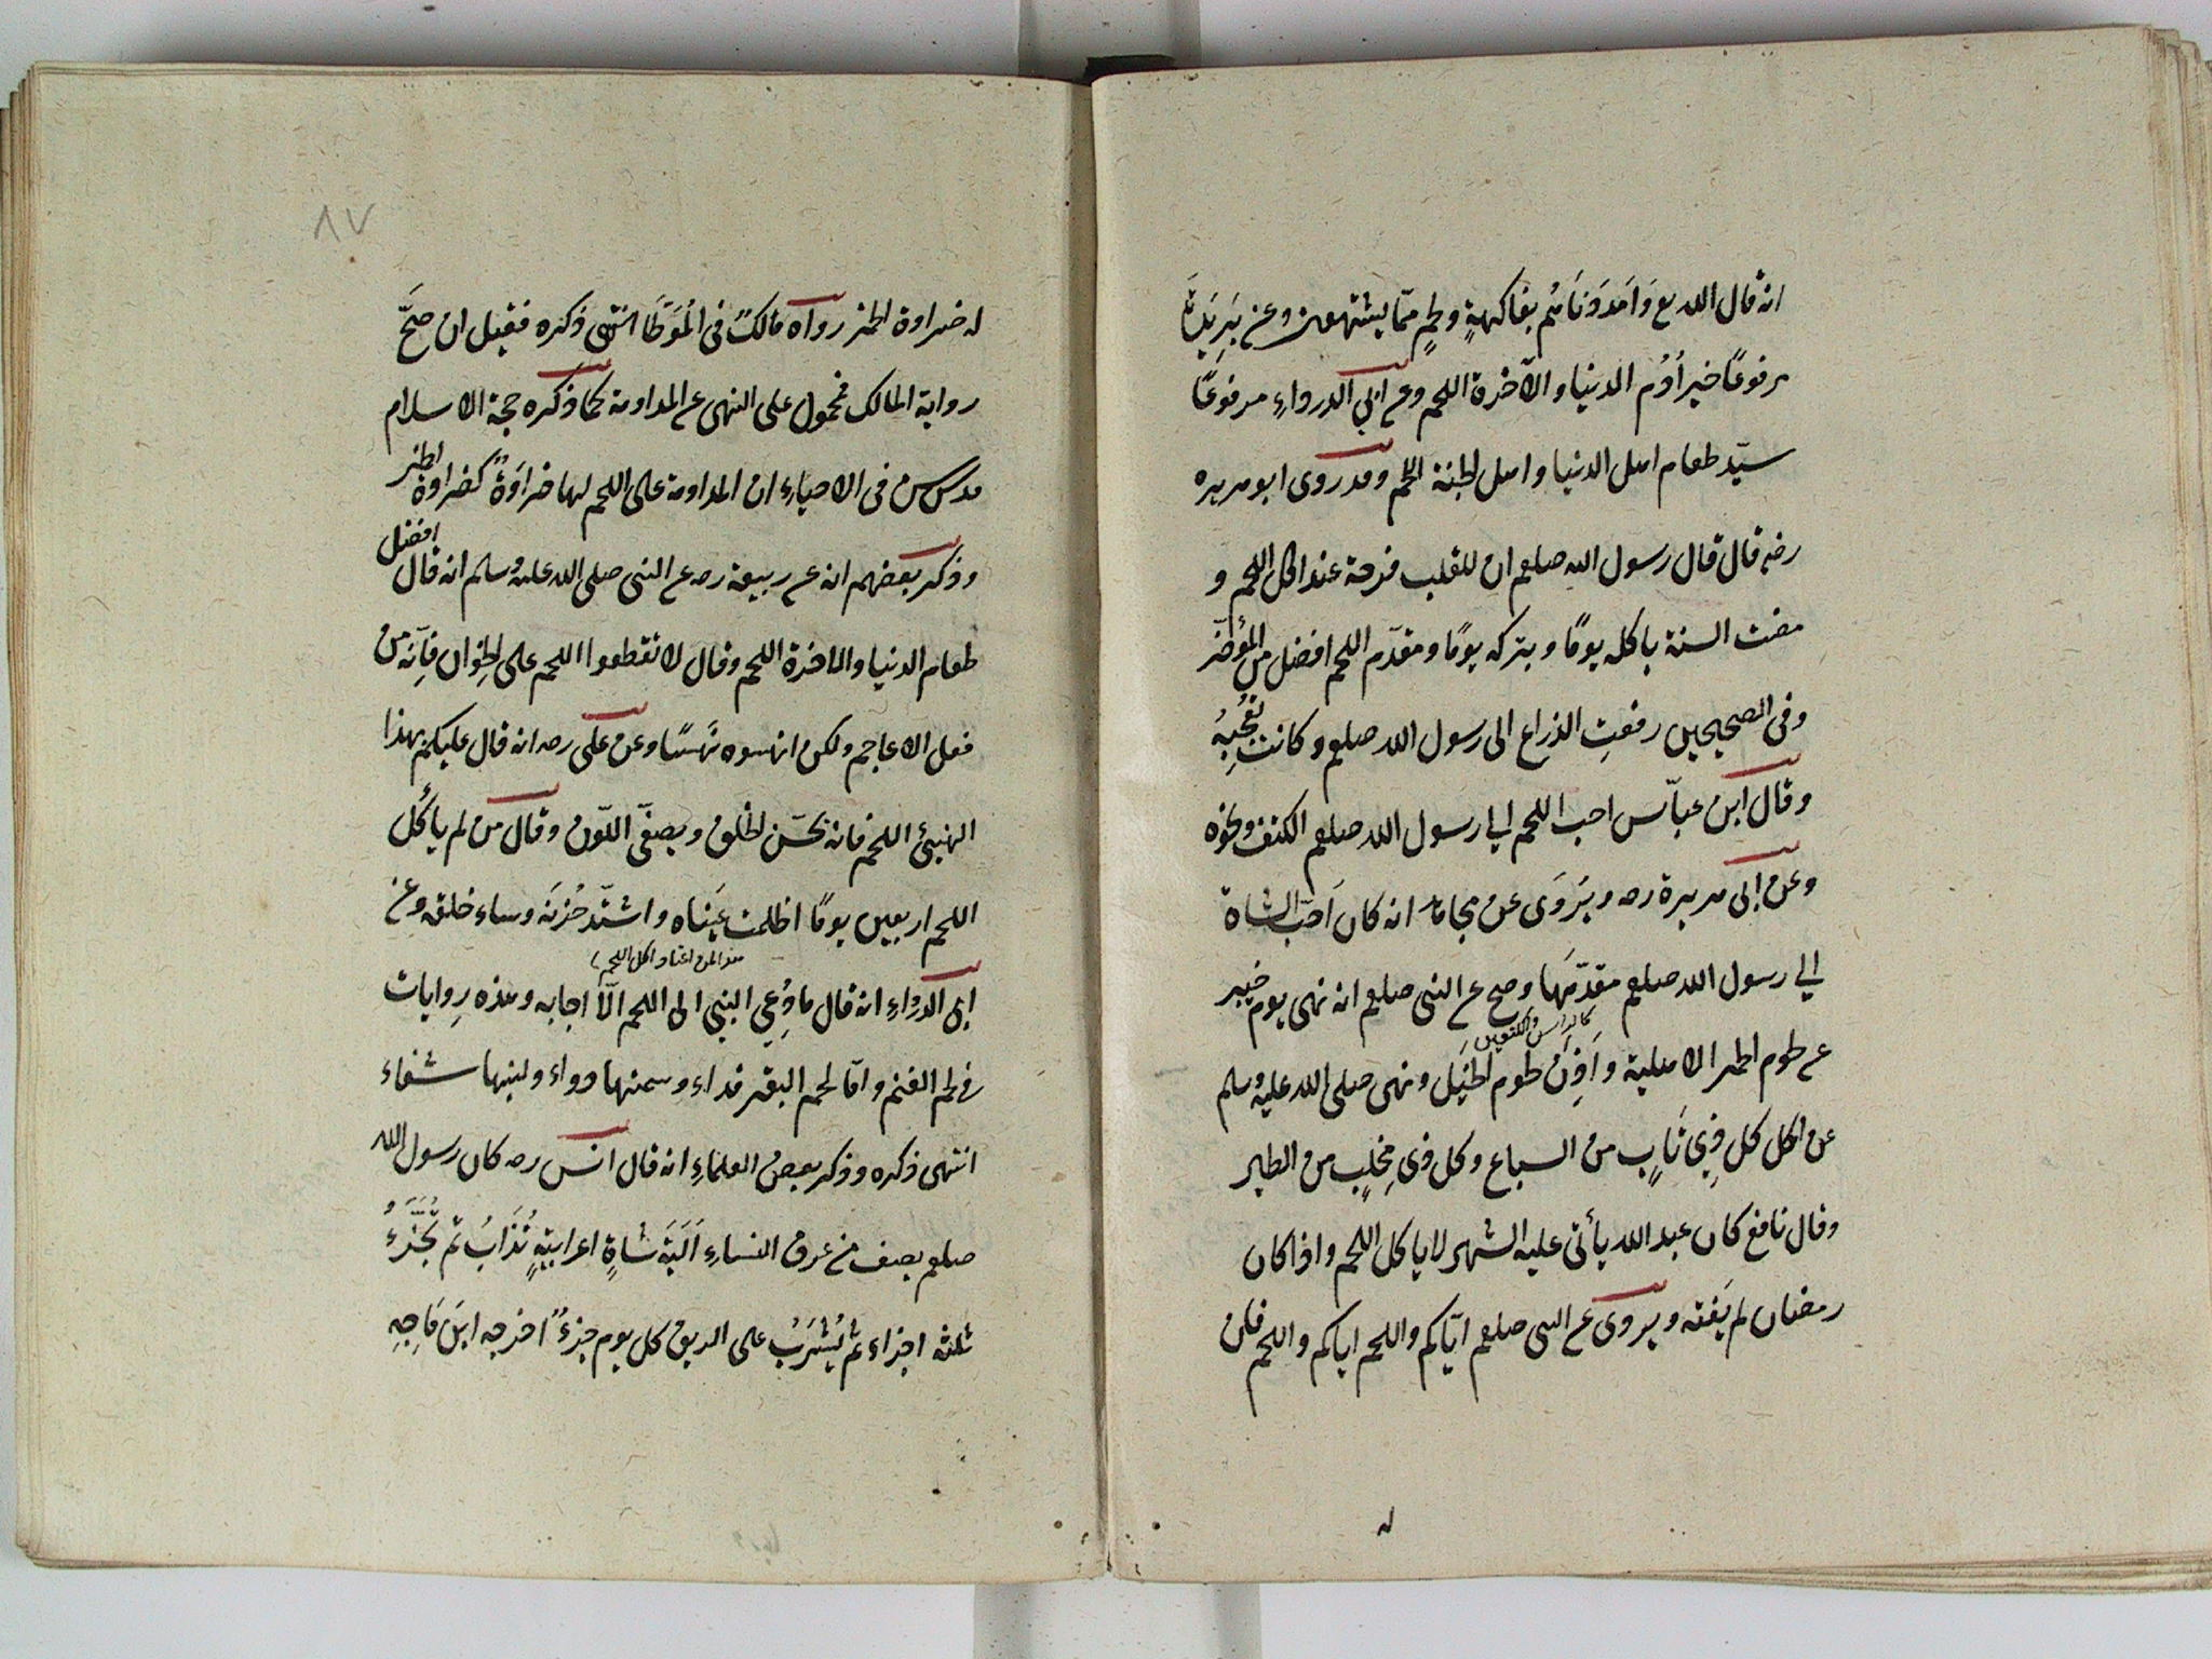 انه قال الله تع وَاَمْدَدْنَاهُم بفاكهةٍ ولحمٍ ممّا يشتهون وعن بَرِيَدَةَ
مرفوعًا خير اُدُم الدنيا والآخرة اللحم وعن ابي الدرداءِ مرفوعًا
سيّد طعام اهل الدنيا واهل الجنة اللحم وقد روى ابو هريره
رضه قال قال رسول الله صلعم ان للقلب فرحة عند اكل اللحم و
مضت السنة باكله يومًا وبتركه يومًا ومقدّم اللحم افضل من المؤخّر
وفى الصحيحين رفعتِ الذراع الى رسول الله صلعم وكانت تُعْجِبُهُ
وقال ابن عبّاس احب اللحم الى رسول الله صلعم الكتف ونحوه
وعن ابى هريرة رضه ويَرْوَى عن مجاهد انه كان اَحَبّ الشاة
الى رسول الله صلعم مقدّمَها وصح عن النبى صلعم انه نهى يوم خيبر
كالرأس والكتفين
عن لحوم الحمر الاهلية واَذِنَ لحوم الخَيْل ونهى صلى الله عليه وسلم
عن اكل كل ذِي نَابٍ من السباع وكل ذى مِخْلَبٍ من الطير
وقال نافع كان عبد الله يأتى عليه الشهر لا ياكل اللحم واذا كان
رمضان لم يَفته ويروى عن النبى صلعم ايّاكم واللحم اياكم واللحم فان
له
٨٧
له ضراوة الخمر رواه مالكٌ فى الْمُوَطَّا انتهى ذكره فقيل ان صَحَّ
رواية المالك فمحمول على النهى عن المداومة كما ذكره حجة الاسلام
قدس س فى الاحياءِ ان المداومة على اللحم لها ضَرَاوَةً كضراوة الخمر
وذكر بعضهم انه عن ربيعة رضه عن النبى صلى الله عليه وسلم انه قال افضل
طعام الدنيا والاخرة اللحم وقال لا تقطعوا اللحم على الخِوان فاِنّه من
فعل الاعاجم ولكن انهسوه نَهسًا وعن على رضه انه قال عليكم بهذا
الهنيئ اللحم فانه يحسّن الخلق ويصفّى اللّون وقال من لم يأكُل
اللحم اربعين يومًا اظلمت عَيناه واشتدّ حُزنه وساء خلقه وعن
هذا لمن اعتاد اكل اللحم
ابى الدرداءِ انه قال ما دُعِي النبي الى اللحم اِلّا اجابه وهذه رِوايات
فى لحم الغنم وامّا لحم البقر فداء وسمنها دواء ولبنها شفاء
انتهى ذكره وذكر بعض العلماءِ انه قال انس رضه كان رسول الله
صلعم يصف من عرق النساءِ اَلَيَةَ شاةٍ اعرابيةٍ تُذَابُ ثم تُجَزَّءُ
ثلثة اجزاء ثم يُشْرَبُ على الريق كل يوم جزءٌ اخرجه ابن مَاجِهِ